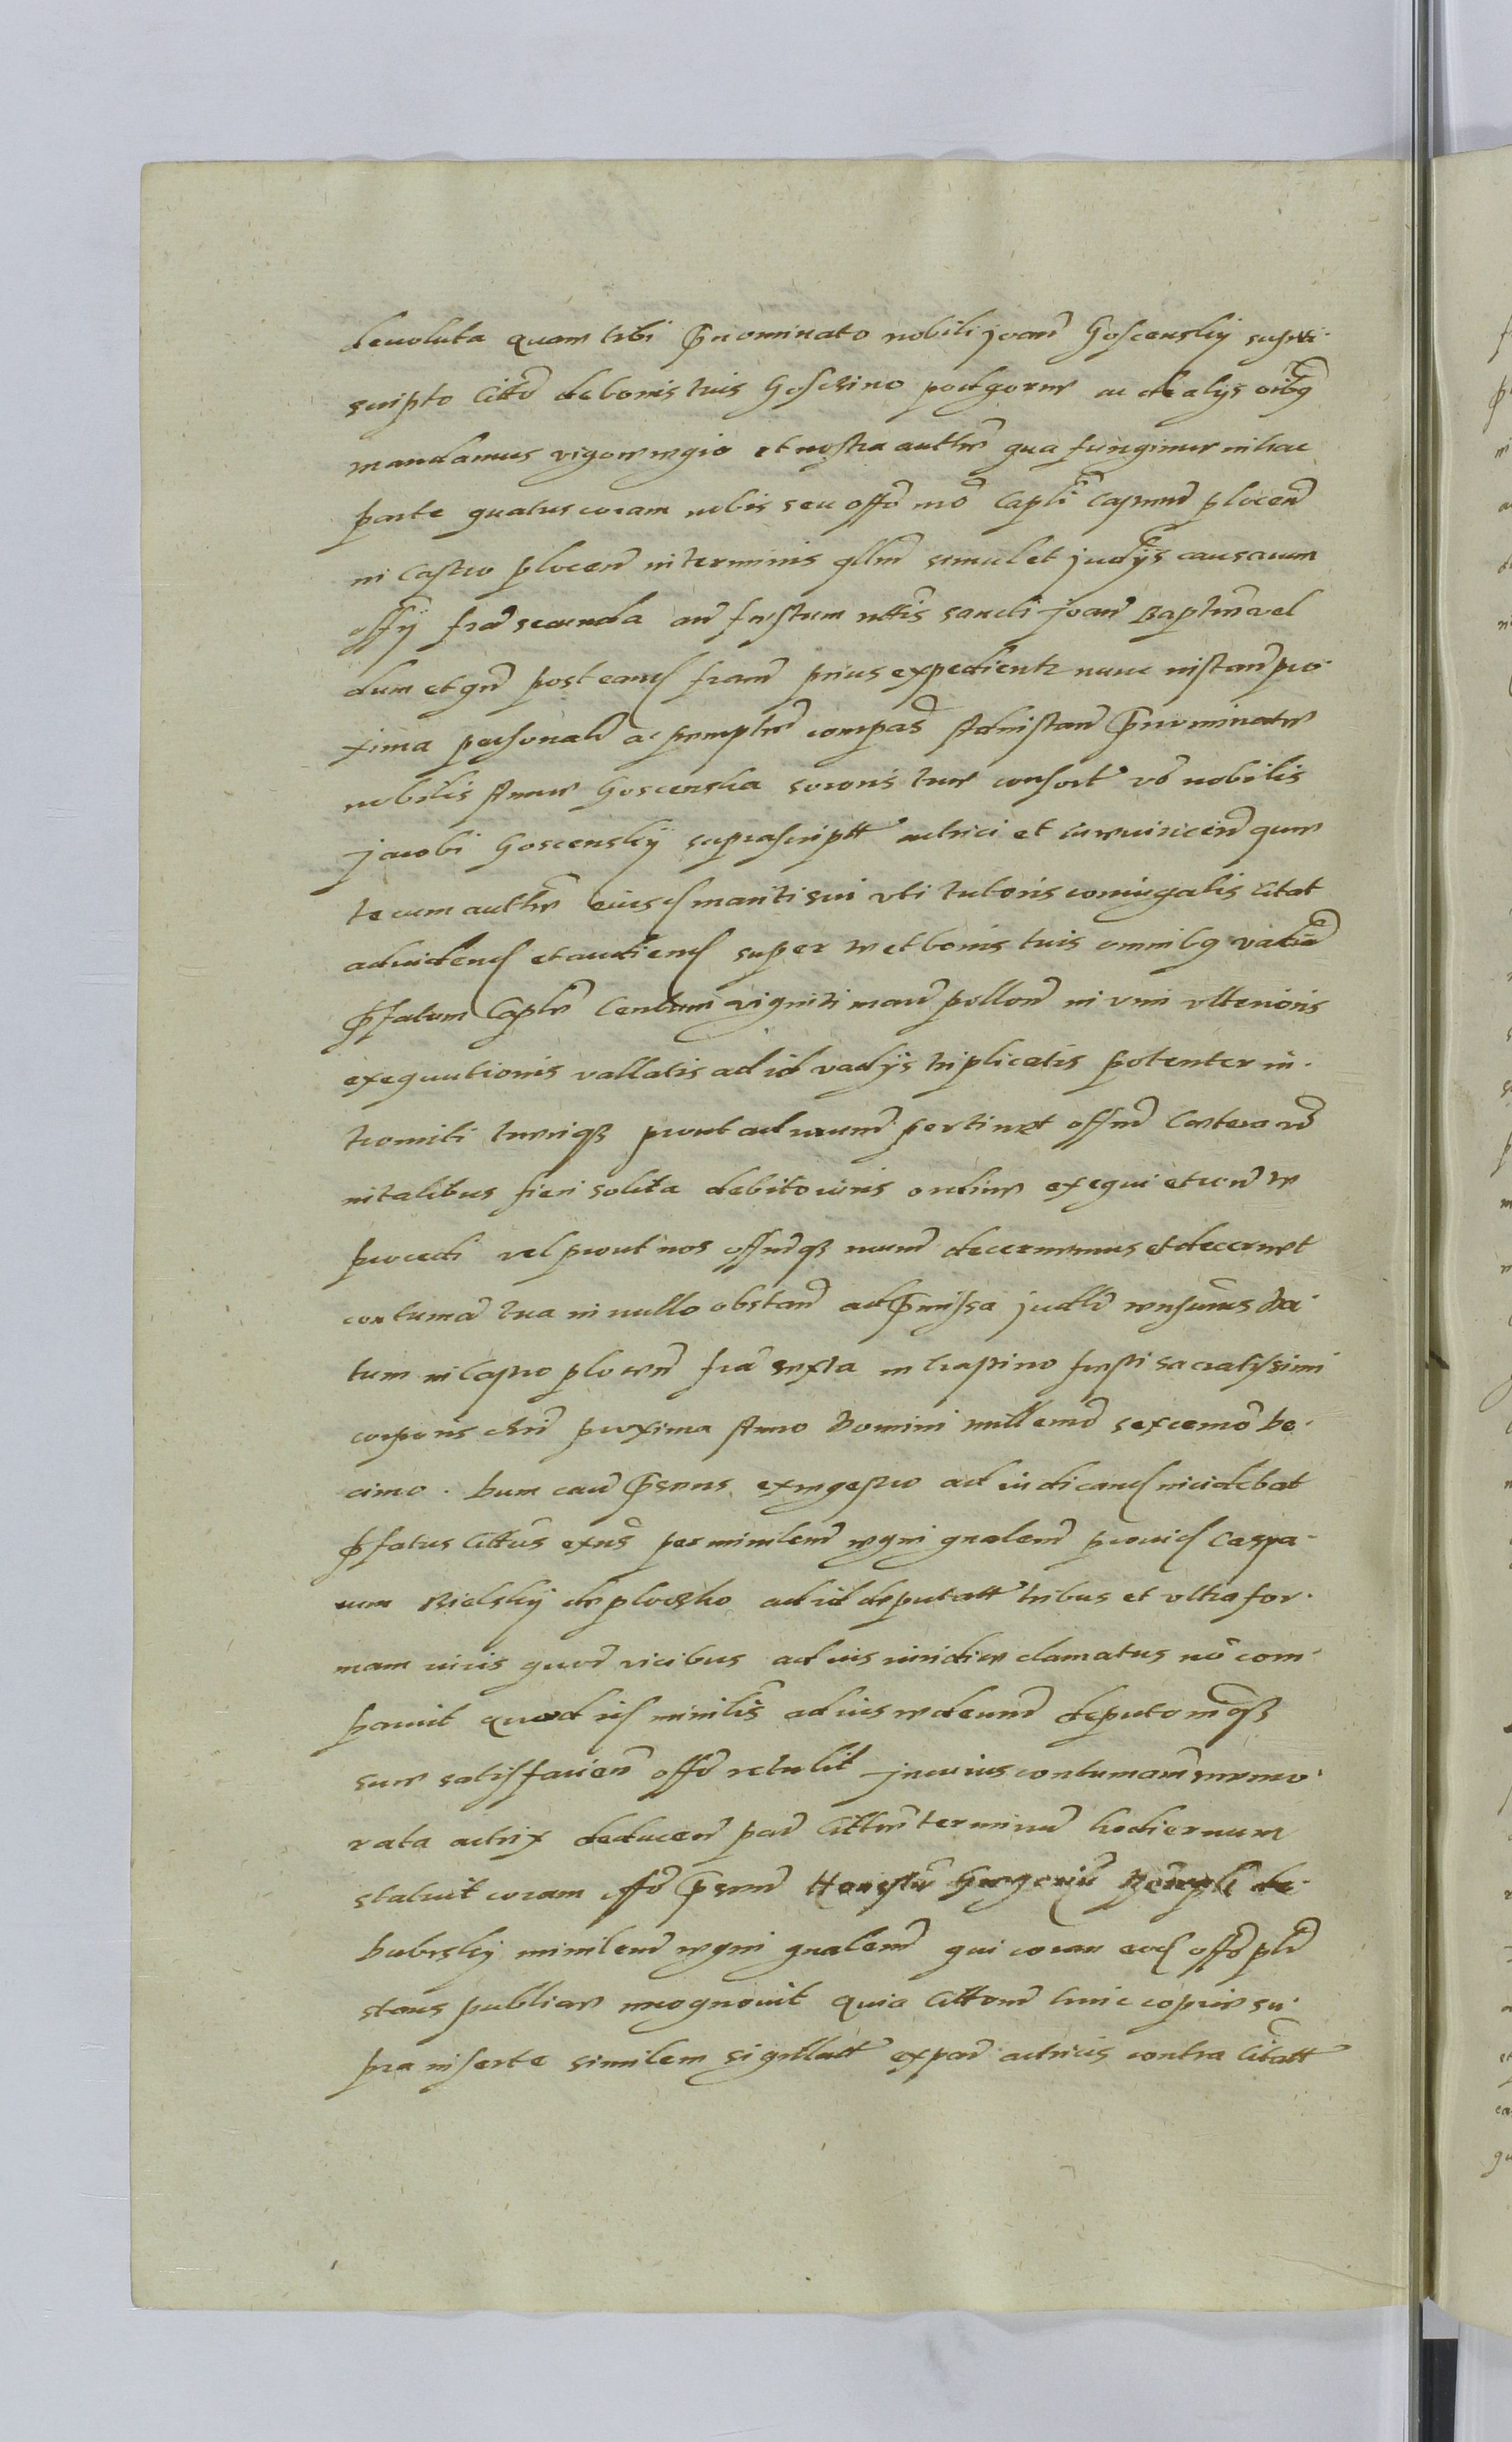 devoluta quam tibi p̄nominato nobili joan̄ Goscensky supra
scripto Citt̄o de bonis tuis Goslino podgorne ac de alys oibq̄
mandamus vigore regio et nostra autthē qua fungimur in hac
parte quatus coram nobis seu offō nrō Capli Castren̄ plocen̄
in Castro plocen̄ in terminis qllm̄ simul et judÿs causarum
offÿ fria secunda an̄ festum nttis sancti joan̄ Baptistæ vel
dum et qn̄ post eand fiam̄ prius expedientr nunc instan̄ pro
xima personalr̄ ac peremptē compas̄ Ad instan̄ p̄nominatæ
nobilis Annæ Goscenska sororis tuæ consort vō nobilis
jacobi Goscenskÿ suprascriptt actrici et quæ
te cum autthē eiusd mariti sui vti tutoris coniugalis citat
ad videnđ et audienđ super te et bonis tuis omnibq vadiū
p̄fatum Caplē Centum viginti marc̄ pollon̄ in vim vlterioris
exequutionis vallatis ad id vadÿs triplicatis potenter in
tromitti tuūiqȝ prout ad nrum̄ pertinet offm̄ Cætera vō
in talibus fieri solita debito iuris ordine exequi et ten̄ te
procedi vel prout nos offmqȝ nrum̄ decernemus et decernet
contuma tua in nullo obstan̄ ad p̄missa judlr̄ rnsurus Da
tum in Castro plocen̄ fria sexta in crastino festi sacratissimi
corporis chri proxima Anno Domini millemo sexcemo De
cimo. Dum cau p̄sens ex regestro ad iudicand incidebat
p̄fatus Cittus exns per minrlem̄ regni gnalem̄ provid Caspa
rum Bielsky de plocsko ad id deputatt tribus et vltra for
mam iuris quor̄ vicibus ad ius iuridice clamatus nō com
paruit quod id minrlis ad ius reddeund deputomqȝ
suæ satisfacien̄ offō retulit jn cuius contumam̄ memo
rata actrix deducen̄ par̄ Citt̄um terminū hodiernum
statuit coram offō p̄senti Honestū Gregoriū de
Dubrsky minrlem̄ regni gnalem̄ qui coram eod offō plr̄
stans publice recognovit quia Cittom̄ huic copiæ su
pra inserte similem sigillatt ex par̄ actricis contra Citatt